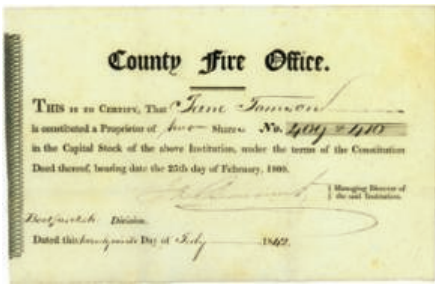 County Fire Office.
THIS IS TO CERTIFY, That Jane
is constituted a Proprietor of two Shares No. 409 & 410
in the Capital Stock of the above Institution, under the terms of the Constitution
Deed thereof, bearing date the 25th day of February, 1809.
Managing Director of
the said Institution.
Division.
Dated this Day of July 1842